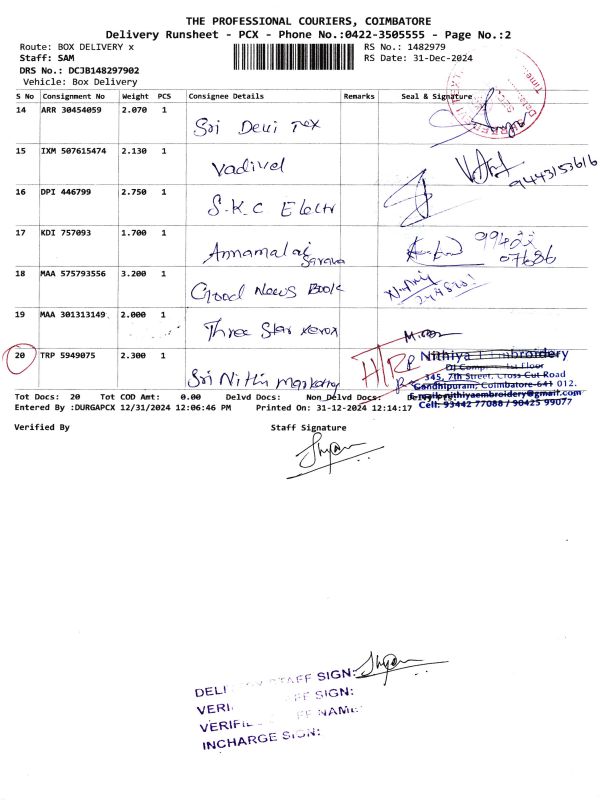 THE PROFESSIONAL COURIERS, COIMBATORE
Delivery Runsheet - PCX - Phone No.:0422-3505555 - Page No.:2
Route: BOX DELIVERY x RS No.: 1482979
Staff: SAM RS Date: 31-Dec-2024
DRS No.: DCJB148297902
Vehicle: Box Delivery
S No Consignment No Weight PCS Consignee Details Remarks Seal & Signature
14 ARR 30454059 2.070 1
Sri Devi Tex
15 IXM 507615474 2.130 1
Vadivel 9443153616
16 DPI 446799 2.750 1
S.K.C Electr
17 KDI 757093 1.700 1
Annamalai
Sarava
18 MAA 575793556 3.200 1
Good News Book
19 MAA 301313149 2.000 1
Three Star xerox
20 TRP 5949075 2.300 1
Sri Nithi
Nithiya Embroidery
1st Floor
345, 7th Street, Cross Cut Road
Gandhipuram, Coimbatore-641 012.
E-mail: nithiyaembroidery@gmail.com
Cell: 93442 77088 / 90425 99077
Tot Docs: 20 Tot COD Amt: 0.00 Delvd Docs: Non_Delvd Docs:
Entered By :DURGAPCX 12/31/2024 12:06:46 PM Printed On: 31-12-2024 12:14:17
Verified By Staff Signature
STAFF SIGN:
SIGN:
NAME:
INCHARGE SIGN: